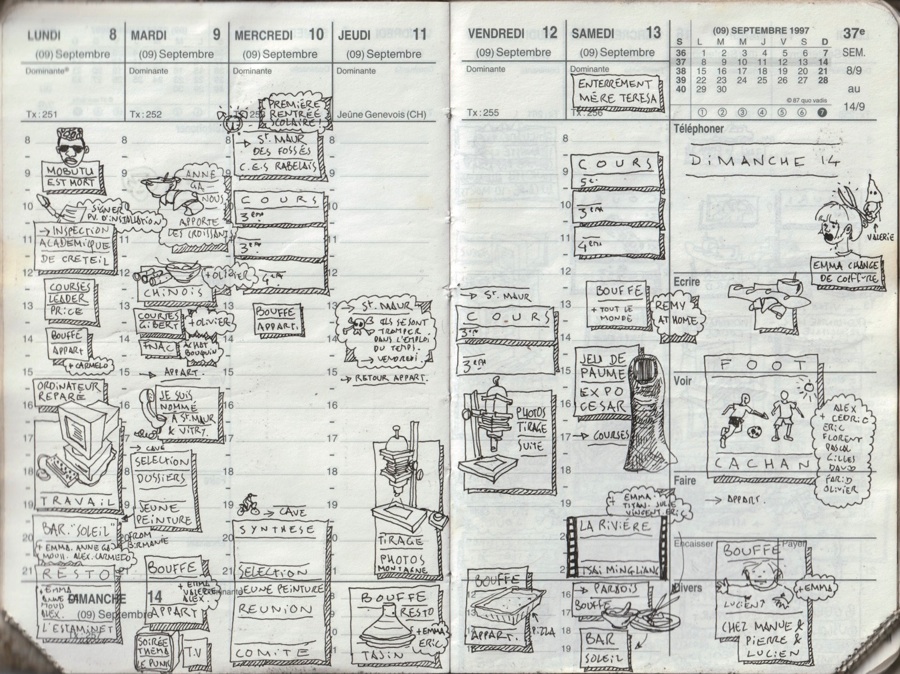 LUNDI 8
(09) Septembre
Dominante
Tx: 251
MOBUTU
EST MORT
SIGNER
P.V. D'INSTALLATION
→ INSPECTION
ACADEMIQUE
DE CRETEIL
COURSES
LEADER
PRICE
BOUFFE
APPART
+ CARMELO
ORDINATEUR
REPARÉ
TRAVAIL
BAR. "SOLEIL"
RESTO
L'ESTAMINET
DIMANCHE 14
(09) Septembre
MARDI 9
(09) Septembre
Dominante
Tx: 252
ANNE
GA
NOUS
APPORTE
LES CROISSANTS
CHINOIS
+ OLIVIER
COURSES
GIBERT
+ OLIVIER
FNAC
ACHAT
BOUQUIN
→ APPART.
JE SUIS
NOMMÉ
A ST. MAUR
& VITRY.
→ CAVE
SELECTION
DOSSIERS
JEUNE
PEINTURE
BOUFFE
APPART
+ EMMA
VALERIE
ALEX.
SOIRÉE
THEMA
LE PUNK
T.V
MERCREDI 10
(09) Septembre
Dominante
PREMIÈRE
RENTRÉE
SCOLAIRE!
→ ST. MAUR
DES FOSSÉS
C.E.S RABELAIS
COURS
3ème
3ème
4ème
BOUFFE
APPART.
→ CAVE
SYNTHESE
SELECTION
JEUNE PEINTURE
REUNION
COMITE
JEUDI 11
(09) Septembre
Dominante
Jeûne Genevois (CH)
→ ST. MAUR
ILS SE SONT
TROMPER
DANS L'EMPLOI
DU TEMPS.
→ VENDREDI
→ RETOUR APPART.
TIRAGE
PHOTOS
MONTAGNE
BOUFFE
RESTO
+ EMMA
ERIC
TAJIN
VENDREDI 12
(09) Septembre
Dominante
Tx: 255
→ ST. MAUR
COURS
3ème
3ème
PHOTOS
TIRAGE
SUITE
BOUFFE
APPART.
PIZZA
SAMEDI 13
(09) Septembre
Dominante
ENTERREMENT
MÈRE TERESA
Tx: 256
COURS
3ème
4ème
BOUFFE
+ TOUT LE
MONDE
REMY
AT HOME
JEU DE
PAUME
EXPO
CESAR
→ COURSES
LA RIVIÈRE
TSAI MING LIANG
→ PARADIS
BOUFFE
BAR
SOLEIL
(09) SEPTEMBRE 1997
S L M M J V S D
36 1 2 3 4 5 6 7
37 8 9 10 11 12 13 14
38 15 16 17 18 19 20 21
39 22 23 24 25 26 27 28
40 29 30
© 87 quo vadis
① ② ③ ④ ⑤ ⑥ ❼
37e
SEM.
8/9
au
14/9
Téléphoner
DIMANCHE 14
VALERIE
EMMA CHANGE
DE COIFFURE
Ecrire
Voir
FOOT
CACHAN
ALEX
+ CEDRIC
ERIC
FLORENT
PASCAL
GILLES
DAVID
FARID
OLIVIER
Faire
→ APPART.
Encaisser
Payer
BOUFFE
LUCIEN?
+ EMMA
CHEZ MANUE &
PIERRE &
LUCIEN
Divers